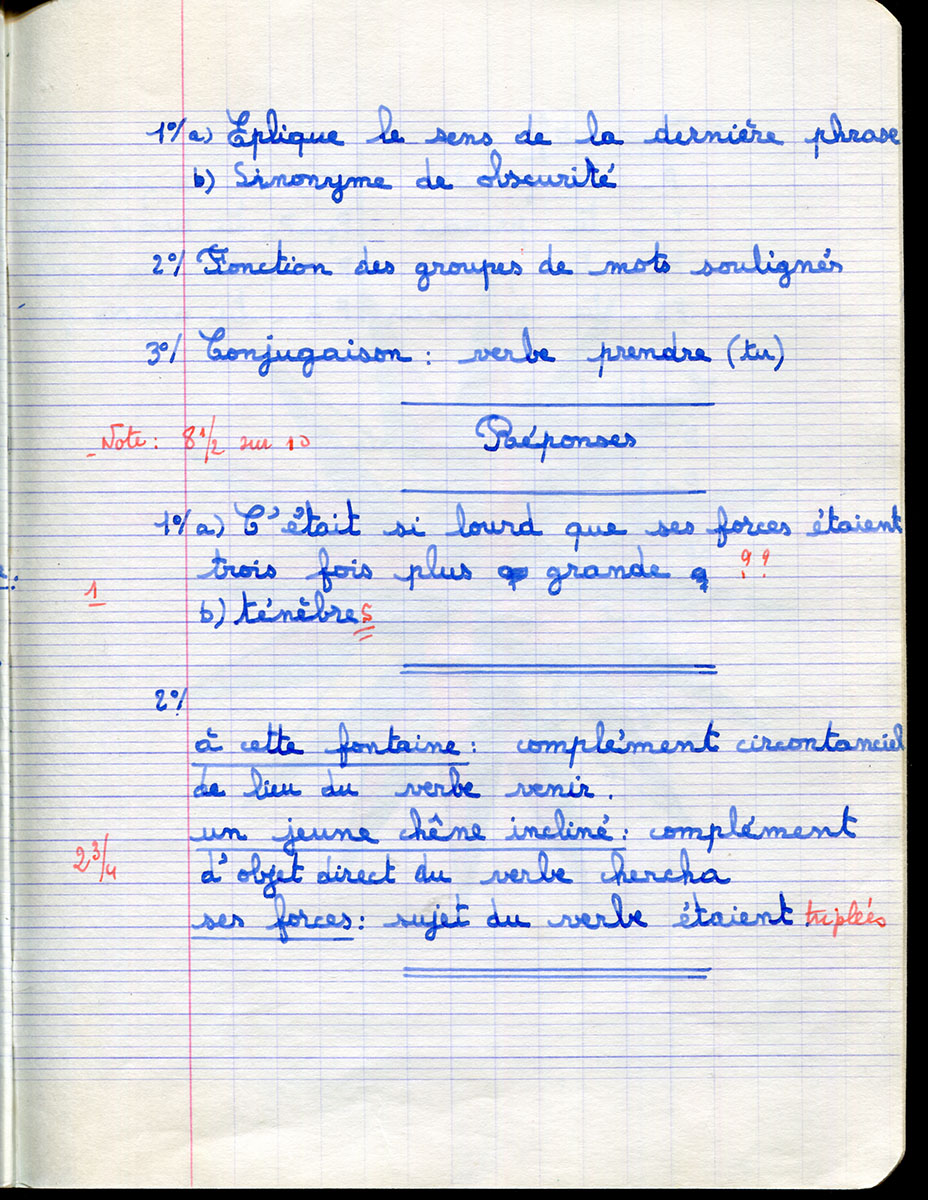 1°/ a) Eplique le sens de la dernière phrase
b) Sinonyme de obscurité
2°/ Fonction des groupes de mots soulignés
3°/ Conjugaison : verbe prendre (tu)
Note : 8 1/2 sur 10
Réponses
1°/ a) C'était si lourd que ses forces étaient
trois fois plus grande ??
1
b) ténèbres
2°/
à cette fontaine : complément circontanciel
de lieu du verbe venir.
un jeune chêne incliné : complément
2 3/4
d'objet direct du verbe chercha
ses forces : sujet du verbe étaient triplées